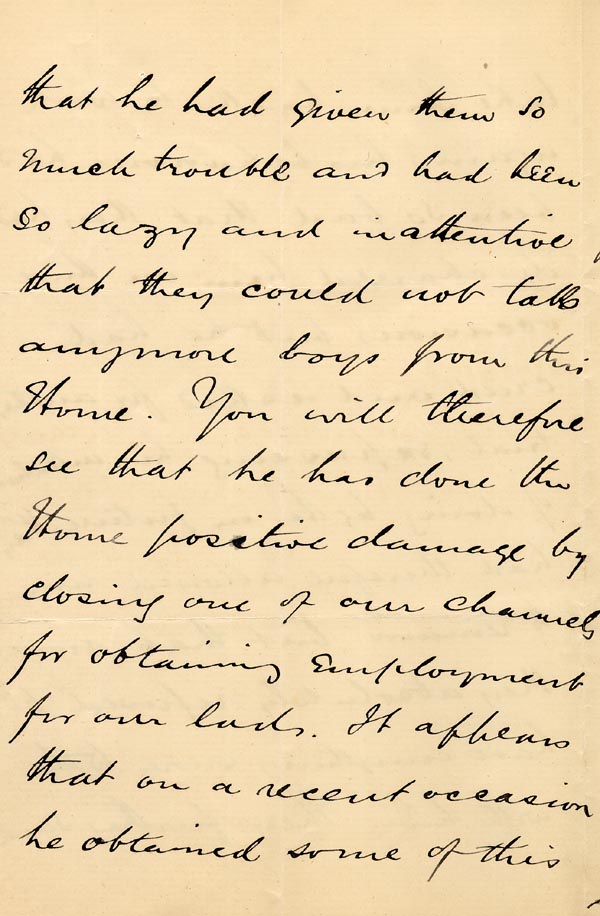 that he had given them so
much trouble and had been
so lazy and inattentive
that they could not take
anymore boys from this
Home. You will therefore
see that he has done the
Home positive damage by
closing one of our channels
for obtaining employment
for our lads. It appears
that on a recent occasion
he obtained some of this